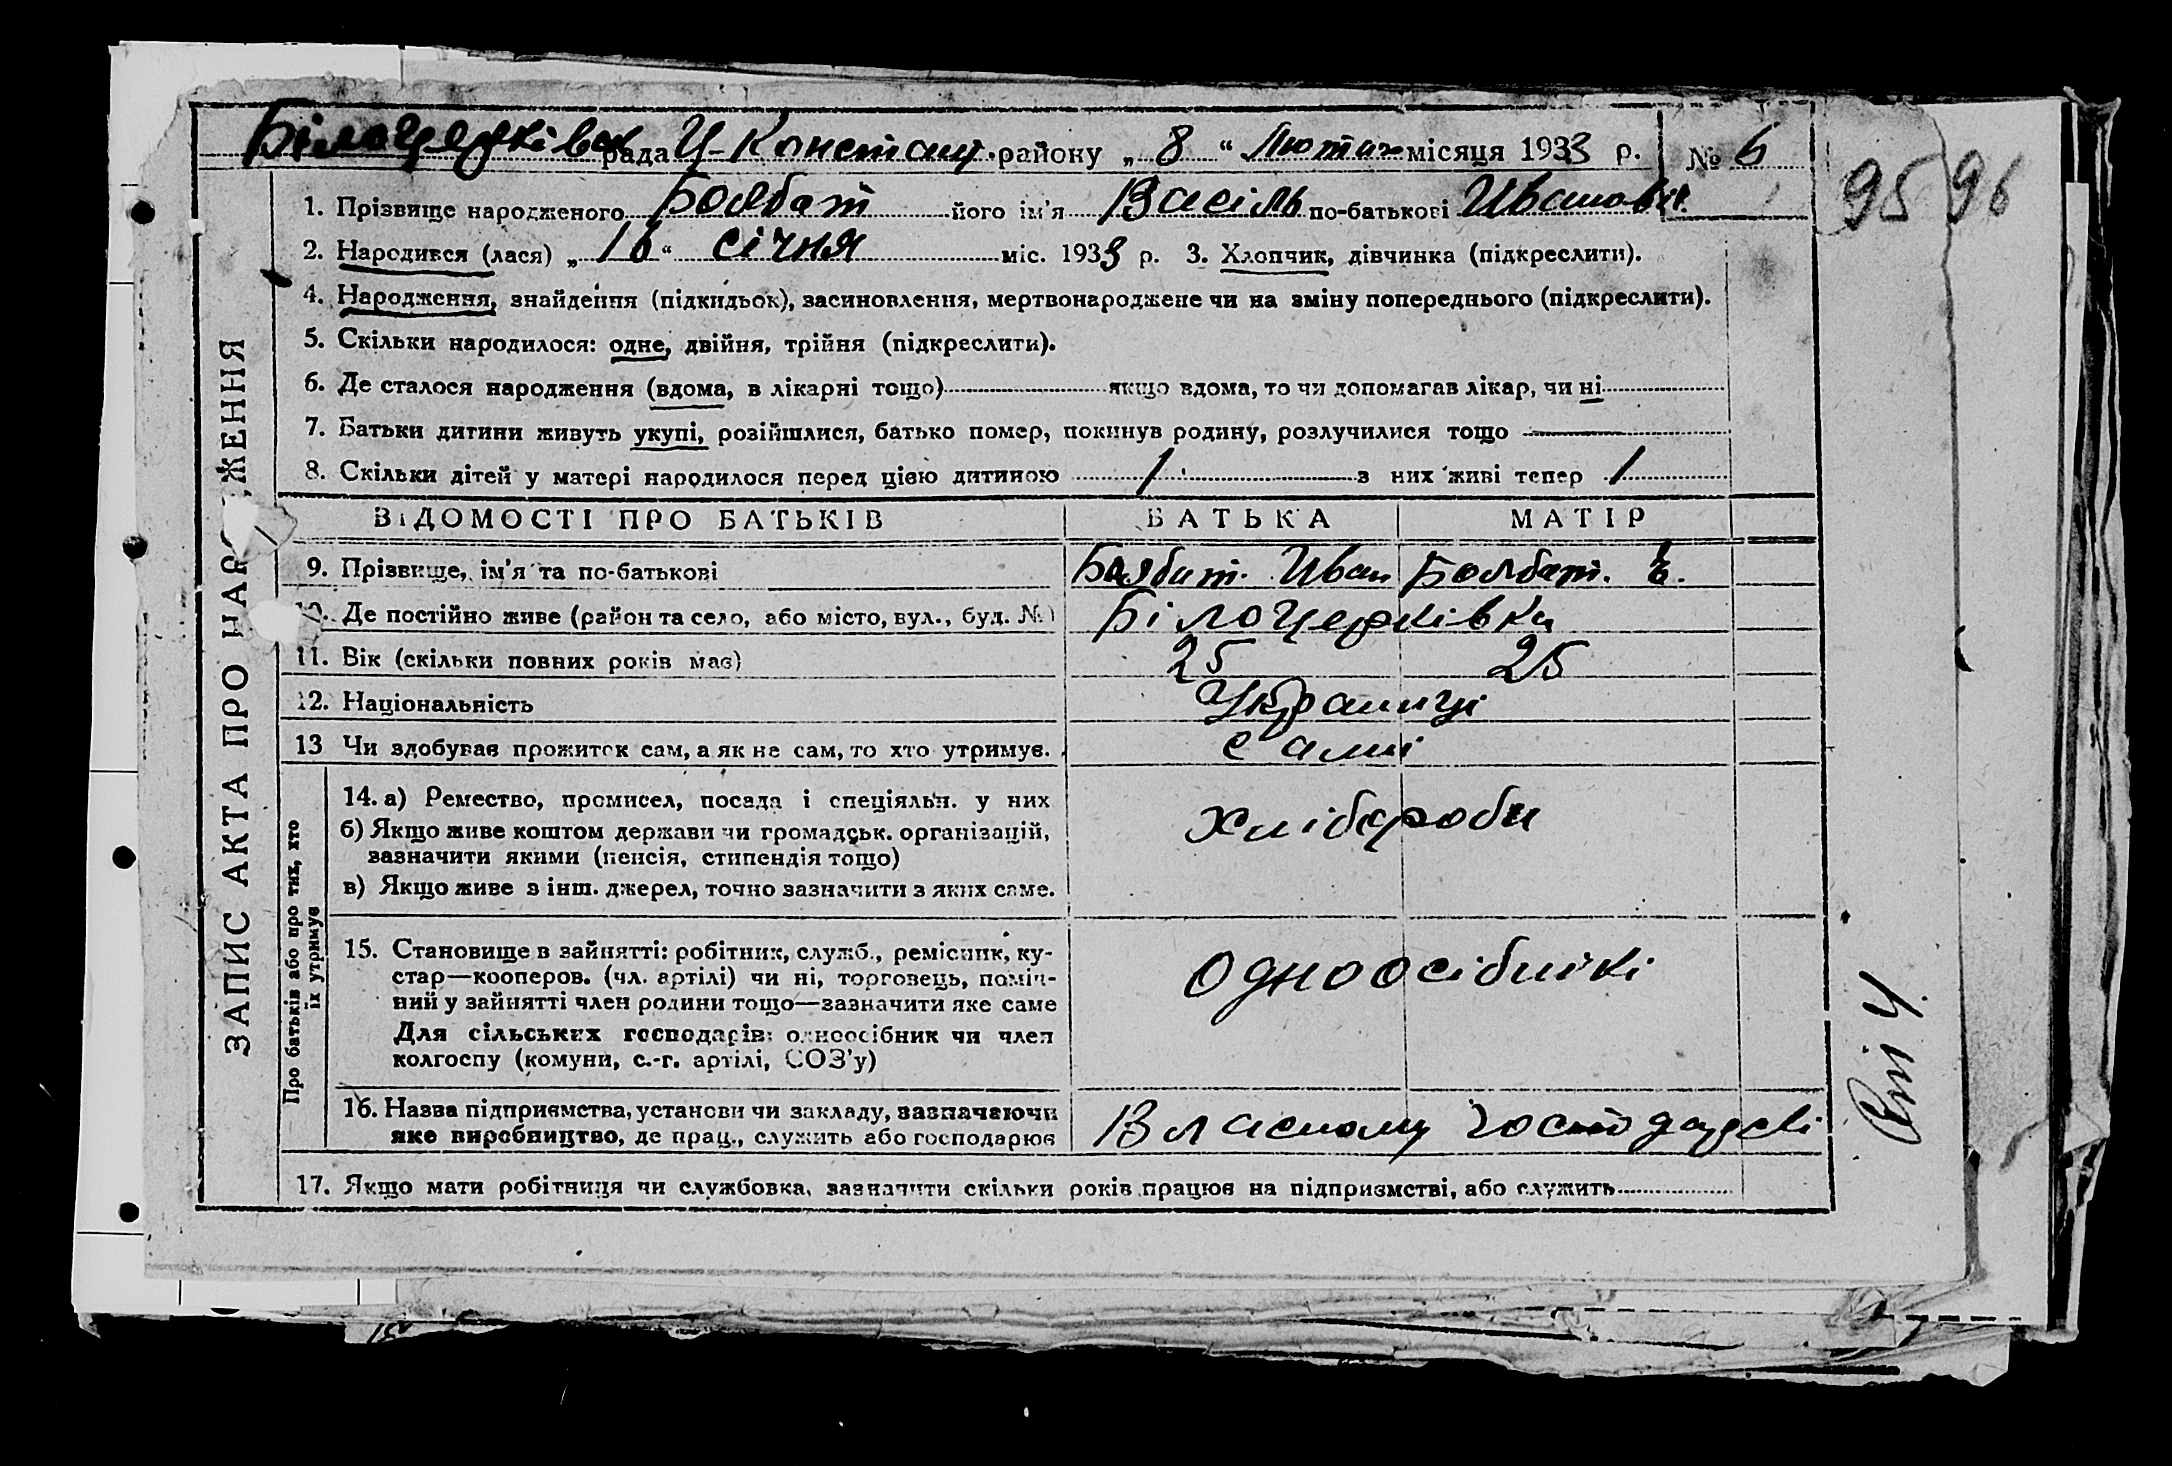 Білоцерківск рада Ц-Констант. району „ 8 “ Лютия місяця 1933 р. № 6
95 96
1. Прізвище народженого Болбат його ім'я Васіль по-батькові Иванович.
2. Народився (лася) „ 16 “ січня міс. 1933 р. 3. Хлопчик, дівчинка (підкреслити).
4. Народження, знайдення (підкидьок), засиновлення, мертвонароджене чи на зміну попереднього (підкреслити).
5. Скільки народилося: одне, двійня, трійня (підкреслити).
6. Де сталося народження (вдома, в лікарні тощо) якщо вдома, то чи допомагав лікар, чи ні
7. Батьки дитини живуть укупі, розійшлися, батько помер, покинув родину, розлучилися тощо
8. Скільки дітей у матері народилося перед цією дитиною 1 з них живі тепер 1
ВІДОМОСТІ ПРО БАТЬКІВ БАТЬКА МАТІР
9. Прізвище, ім'я та по-батькові Болбат. Иван Болбат. Е.
10. Де постійно живе (район та село, або місто, вул., буд. №) Білоцерківка
11. Вік (скільки повних років має) 25 25
12. Національність Украинці
13 Чи здобував прожиток сам, а як не сам, то хто утримує. самі
14. а) Ремество, промисел, посада і спеціяльн. у них
б) Якщо живе коштом держави чи громадськ. організацій, хлібороби
зазначити якими (пенсія, стипендія тощо)
в) Якщо живе з інш. джерел, точно зазначити з яких саме.
15. Становище в зайнятті: робітник, служб., ремісник, ку-
стар—кооперов. (чл. артілі) чи ні, торговець, поміч- одноосібникі
ний у зайнятті член родини тощо—зазначити яке саме
Для сільських господарів: одноосібник чи член
колгоспу (комуни, с.-г. артілі, СОЗ'у)
16. Назва підприємства, установи чи закладу, зазначаючи Власному господарсві
яке виробництво, де прац., служить або господарює
17. Якщо мати робітниця чи службовка, зазначити скільки років працює на підприємстві, або служить
ЗАПИС АКТА ПРО НАРОДЖЕННЯ
Про батьків або про тих, хто
їх утримує